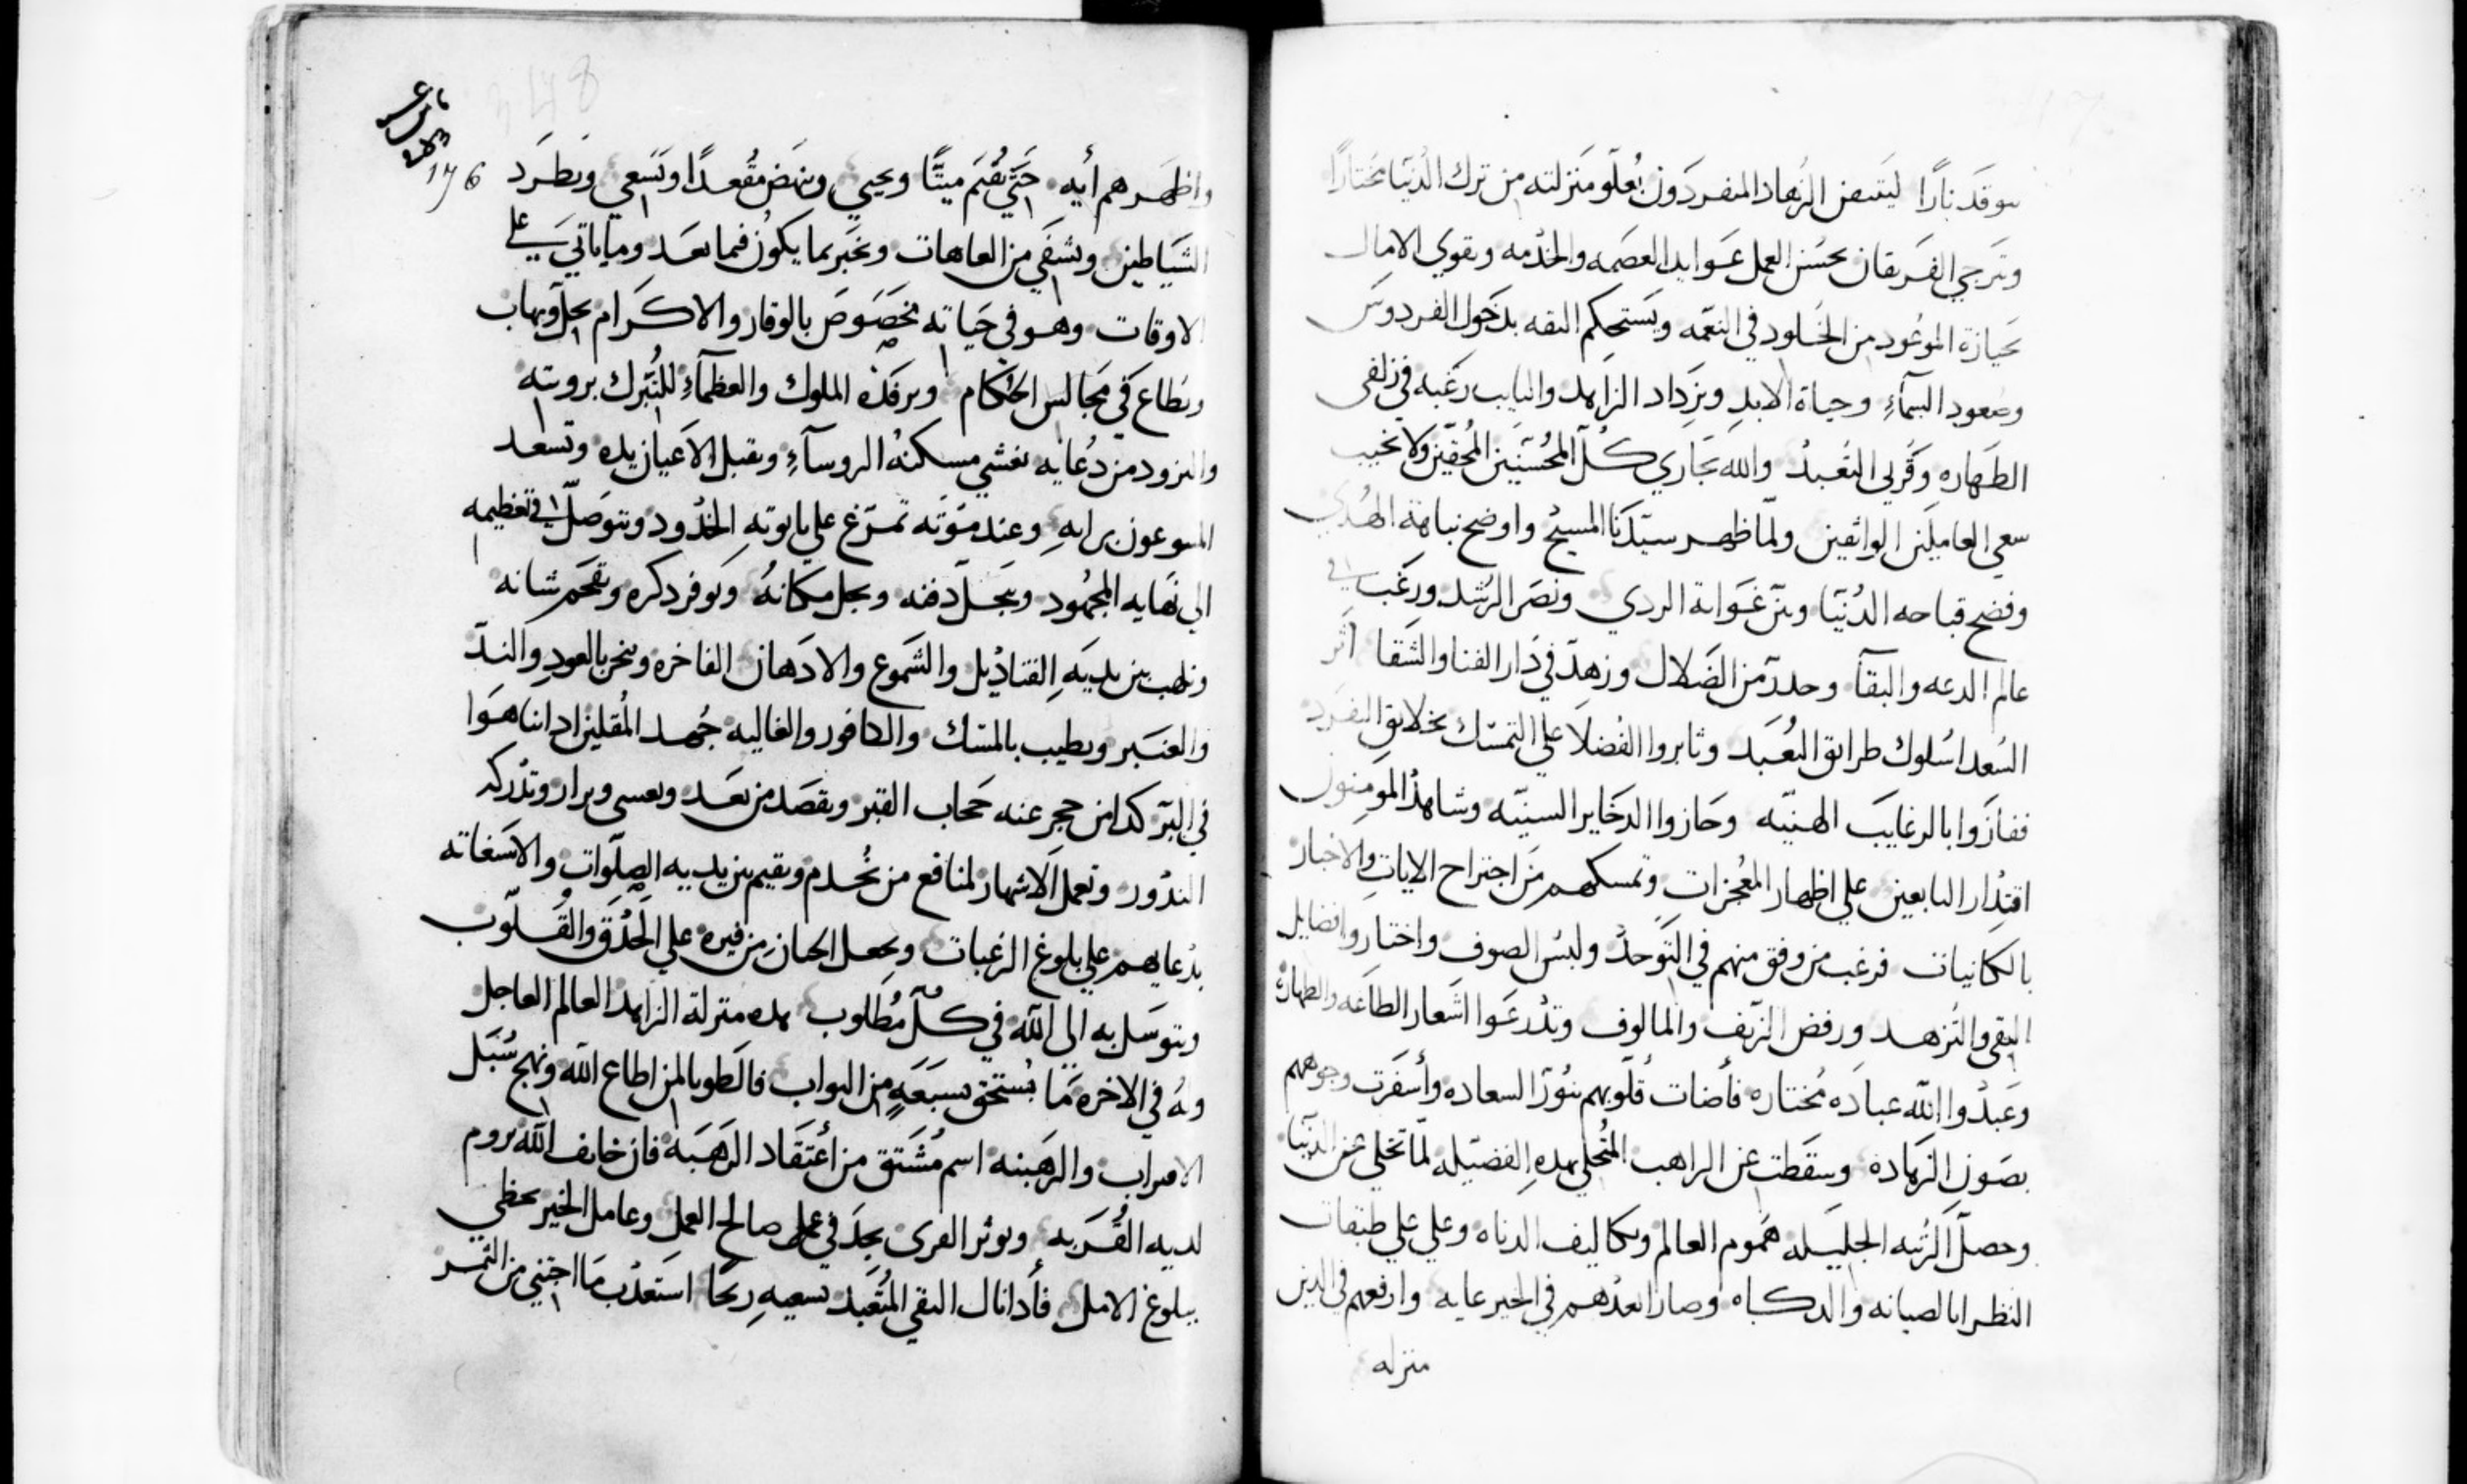 موقد نارًا ليتيقن الزهاد المنفردون بعلو منزلته من ترك الدنيا مختارًا
وترجي الفريقان بحسن العمل عوايد العصمه والخدمه وتقوي الامال
بحيازة الموعود من الخلود في النعمه ويستحكم الثقه بدخول الفردوس
وصعود السماءِ وحياة الابد ويزداد الزاهد والتايب رغبه في زلفى
الطهاره وقربى التعبد والله يجازي كل المحسنين المحقين ولا يخيب
سعي العاملين الواثقين ولما ظهر سيدنا المسيح واوضح نباهة الهدي
وفضح قباحه الدنيا وبين غواية الردي ونصر الرشد ورغب في
عالم الدعه والبقآ وحذر من الضلال وزهد في دار الفنا والشقا اثر
السعدا سلوك طرايق التعبد وثابروا الفضلا على التمسك بخلايق التفرد
ففازوا بالرغايب الهنيه وحازوا الدخاير السنيه وشاهد المومنون
اقتدار التابعين علي اظهار المعجزات وتمسكهم من اجتراح الايات والاخبار
بالكاينات فرغب من وفق منهم في التوحد ولبس الصوف واختاروا فضايل
التقي والتزهد ورفض الزيف والمالوف وتدرعوا اشعار الطاعه والطهاره
وعبدوا الله عباده مختاره فأضات قلوبهم بنور السعاده وأسفرت وجوههم
بصون الزهاده وسقطت عن الراهب المتحلي بهذه الفضيله لما تخلي عن الدنيا
وحصل الرتبه الجليله هموم العالم وتكاليف الدناه وعلي علي طبقات
النظرا بالصيانه والدكاه وصار ابعدهم في الخير غايه وارفعهم في الدين
منزله
176
واظهرهم أيه حتي يقيم ميتًا ويحيي وينهض مقعدًا وتسعي ويطرد
الشياطين ويشفي من العاهات ويخبر بما يكون فيما بعد وما ياتي علي
الاوقات وهو في حياته مخصوص بالوقار والاكرام يجل ويهاب
ويطاع في مجالس الحكام ويرفده الملوك والعظمآءِ للتبرك برويته
والتزود من دعايه تغشي مسكنه الروسآءِ ويقبل الاعيان يده وتسعد
المسوعون برايه وعند موته تمرغ علي تابوته الخدود ويتوصل في تعظيمه
الي نهايه المجهود ويبجل دفنه ويجل مكانه ويوفر دكره وتفخم شانه
وتلهب بين يديه القناديل والشموع والادهان الفاخره وينحر بالعود والند
والعنبر ويطيب بالمسك والكافور والغاليه جهد المقلين اد اتناهوا
في البر كدا من حجر عنه حجاب القبر ويقصد من بعد ويغسي ويزار وتدركه
الندور وتعمل الاشهار لمنافع من يخدم ويقيم بين يديه الصلوات والاستغاثه
بدعايهم علي بلوغ الرغبات ويجعل الحنان من قبره علي الحدق والقلوب
ويتوسل به الي الله في كل مطلوب هده منزلة الزاهد العالم العاجل
وله في الاخره ما يستحق بسبعه من الثواب فالطوبا لمن اطاع الله ونهج سبل
الاقتراب والرهبنه اسم مشتق من أعتقاد الرهبة فان خايف الله يروم
لديه القربه ويوثر القرى يجد في عمل صالح العمل وعامل الخير يحظي
ببلوغ الامل فأدا نال التقي المتعبد بسعيه ربحا استعدب ما اجتني من الثمر